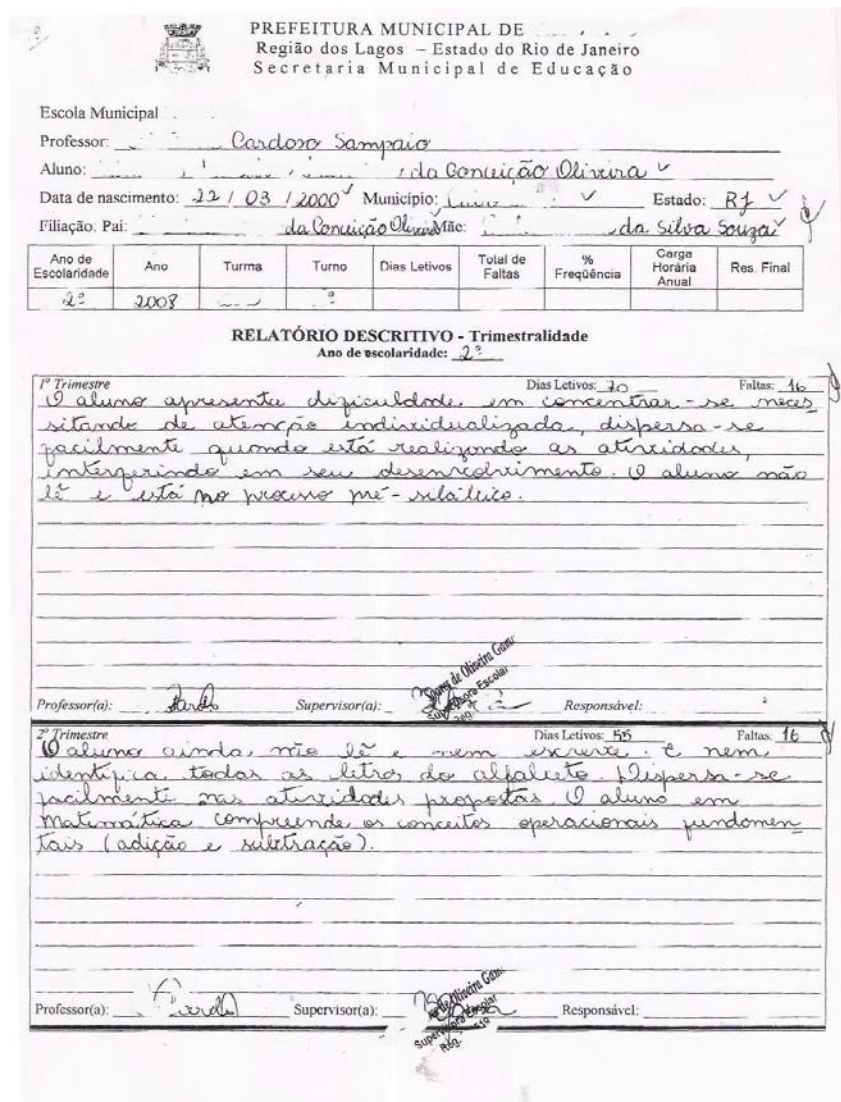 PREFEITURA MUNICIPAL DE
Região dos Lagos – Estado do Rio de Janeiro
Secretaria Municipal de Educação
Escola Municipal
Professor: Cardoso Sampaio
Aluno: da Conceição Oliveira
Data de nascimento: 22 / 03 / 2000 Município: Estado: RJ
Filiação: Pai: da Conceição Oliveira Mãe: da Silva Souza
Ano de Escolaridade Ano Turma Turno Dias Letivos Total de Faltas % Freqüência Carga Horária Anual Res. Final
2º 2008
RELATÓRIO DESCRITIVO - Trimestralidade
Ano de escolaridade: 2º
1º Trimestre Dias Letivos: 70 Faltas: 16
O aluno apresenta dificuldade em concentrar-se neces
sitando de atenção individualizada, dispersa-se
facilmente quando está realizando as atividades,
interferindo em seu desenvolvimento. O aluno não
lê e está no processo pré-silábico.
de Oliveira Gama
Supervisora Escolar
Reg.
Professor(a): Supervisor(a): Responsável:
2º Trimestre Dias Letivos: 55 Faltas: 16
O aluno ainda não lê e nem escreve. E nem
identifica todas as letras do alfabeto. Dispersa-se
facilmente nas atividades propostas. O aluno em
Matemática compreende os conceitos operacionais fundamen-
tais (adição e subtração).
de Oliveira Gama
Supervisora Escolar
Reg.
Professor(a): Supervisor(a): Responsável: